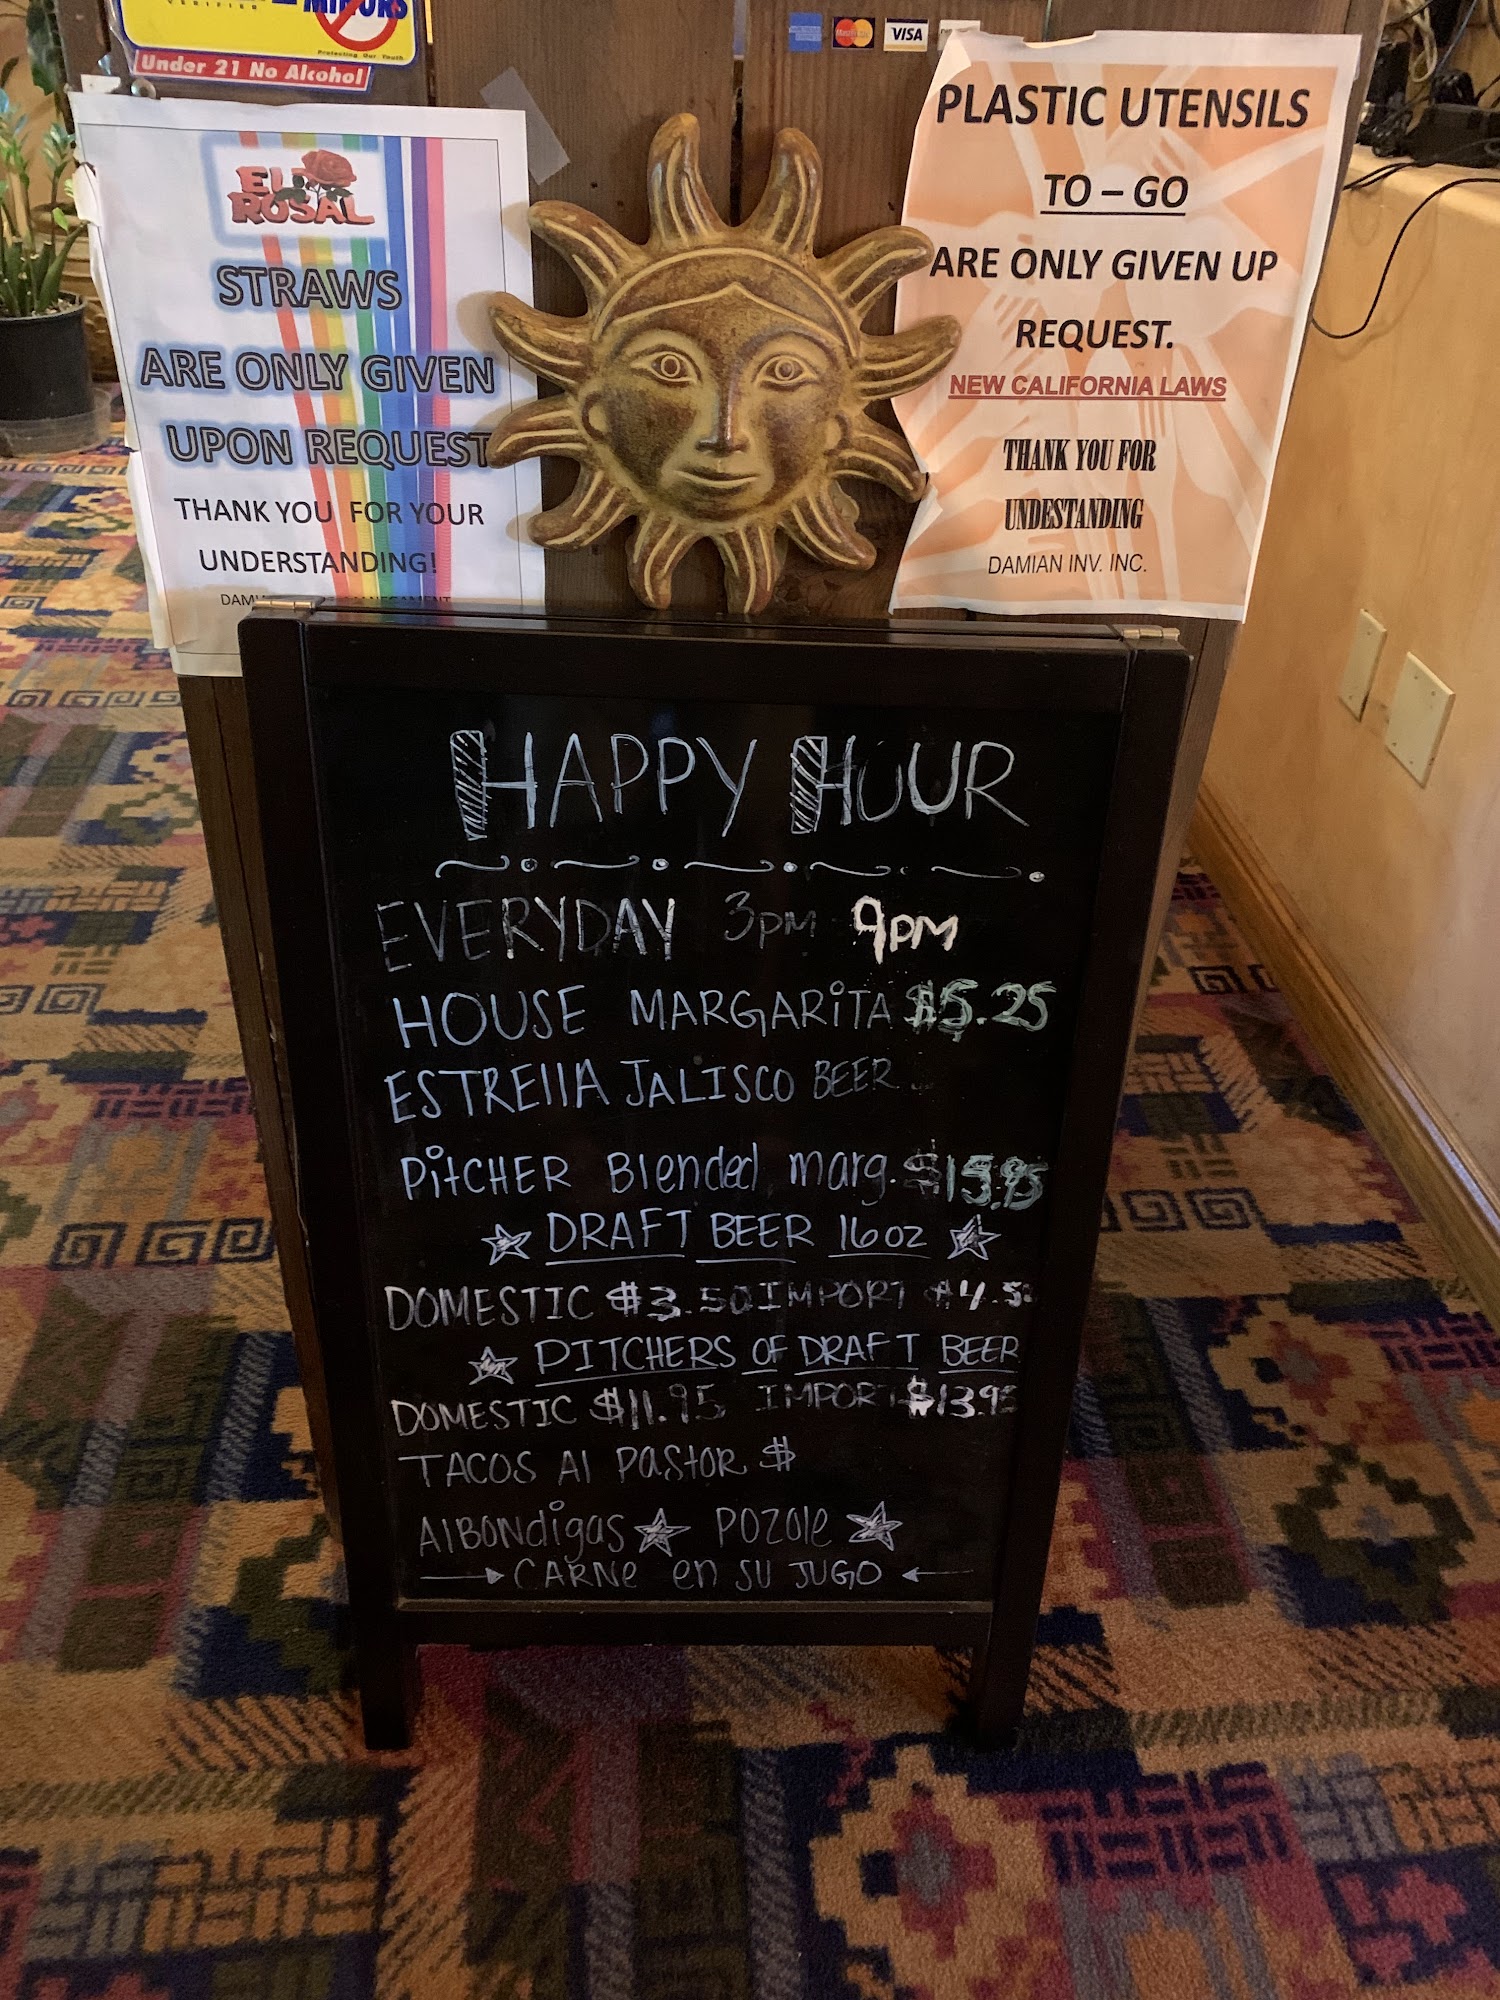 MINORS
Protecting Our Youth
Under 21 No Alcohol
VISA
EL ROSAL
STRAWS
ARE ONLY GIVEN
UPON REQUEST
THANK YOU FOR YOUR
UNDERSTANDING!
PLASTIC UTENSILS
TO – GO
ARE ONLY GIVEN UP
REQUEST.
NEW CALIFORNIA LAWS
THANK YOU FOR
UNDESTANDING
DAMIAN INV. INC.
HAPPY HOUR
EVERYDAY 3PM 9PM
HOUSE MARGARITA $5.25
ESTRELLA JALISCO BEER
PITCHER Blended marg. $15.95
DRAFT BEER 16oz
DOMESTIC $3.50 IMPORT $4.5
PITCHERS OF DRAFT BEER
DOMESTIC $11.95 IMPORT $13.95
TACOS Al Pastor $
AlBONdigas POZole
CARNe en SU JUGO